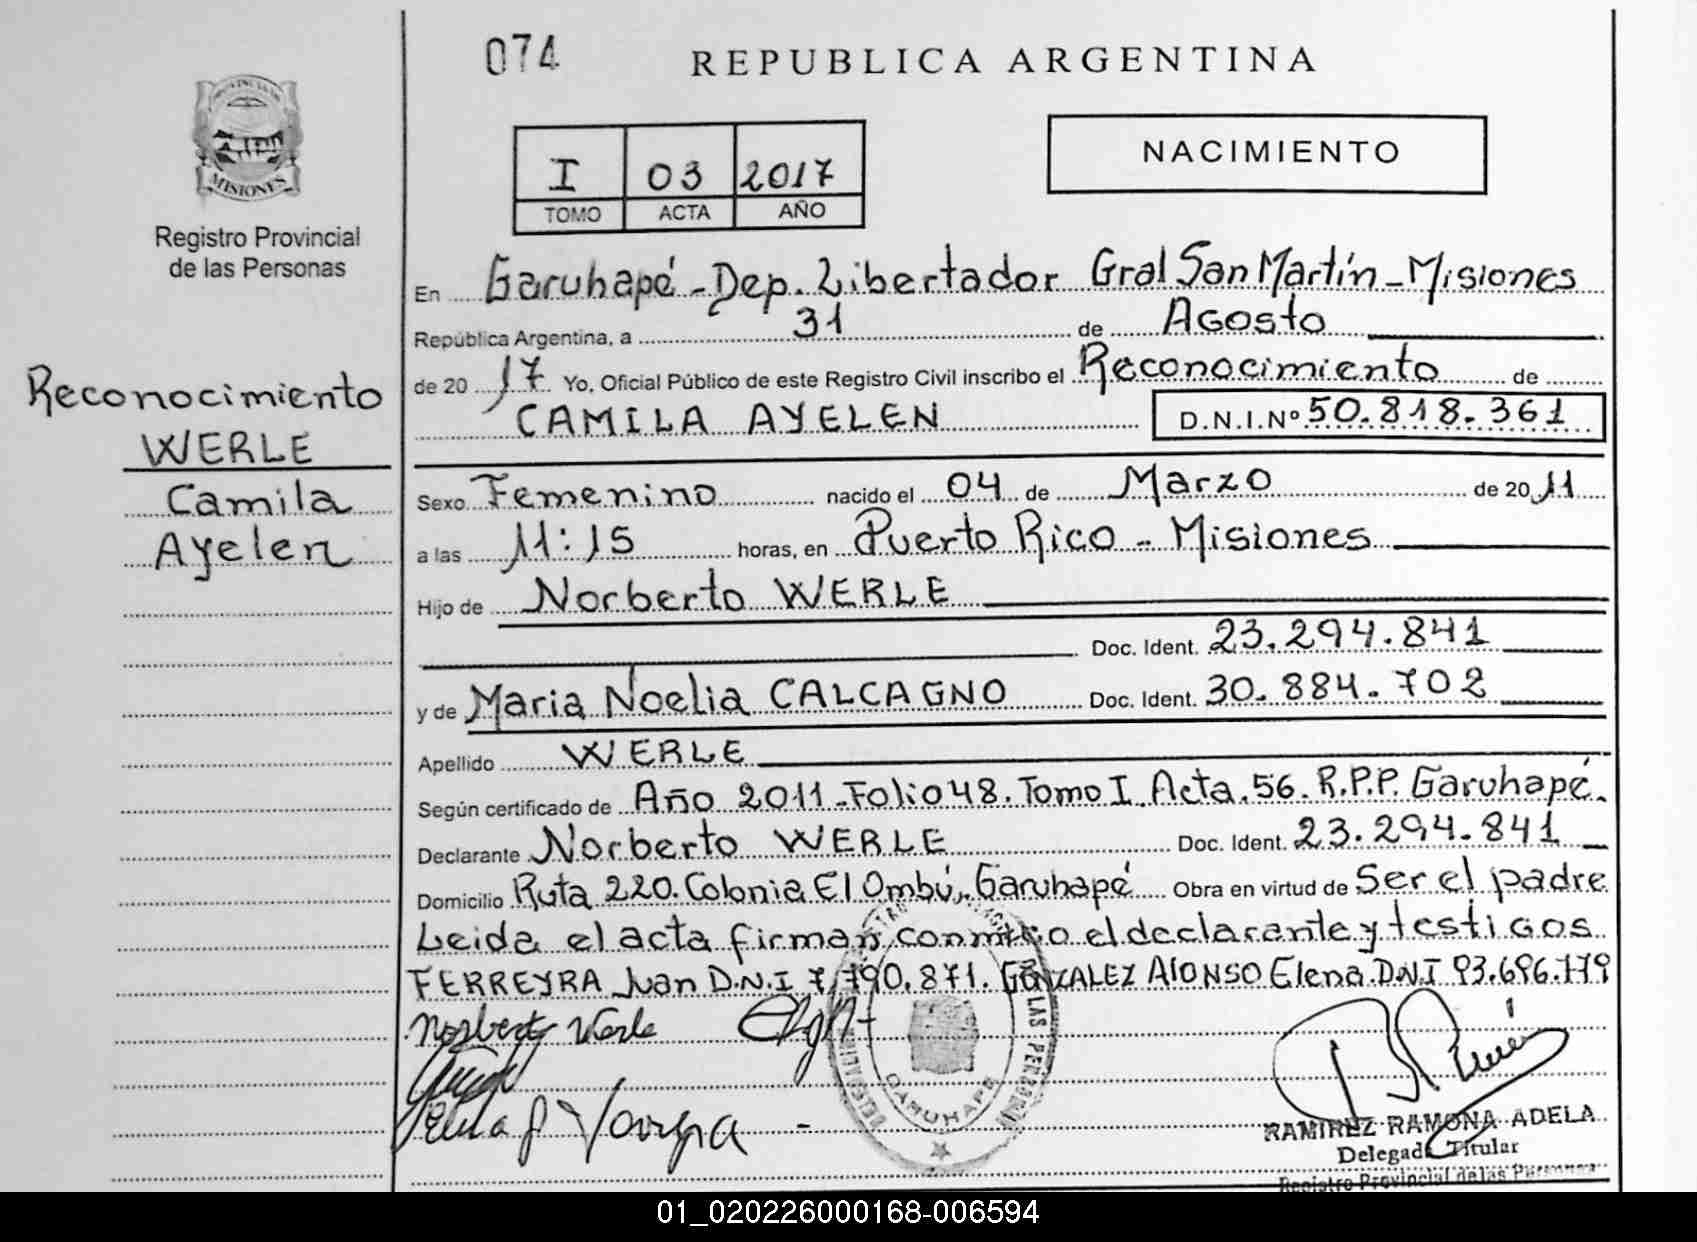 074
REPUBLICA ARGENTINA
NACIMIENTO
I 03 2017
TOMO ACTA AÑO
MISIONES
Registro Provincial
de las Personas
Reconocimiento
WERLE
Camila
Ayelen
En Garuhapé - Dep. Libertador Gral San Martín - Misiones
República Argentina, a 31 de Agosto
de 20 17 Yo, Oficial Público de este Registro Civil inscribo el Reconocimiento de
CAMILA AYELEN D.N.I.Nº 50.818.361
Sexo Femenino nacido el 04 de Marzo de 20 11
a las 11:15 horas, en Puerto Rico - Misiones
Hijo de Norberto WERLE
Doc. Ident. 23.294.841
y de Maria Noelia CALCAGNO Doc. Ident. 30.884.702
Apellido WERLE
Según certificado de Año 2011 - Folio 48. Tomo I. Acta. 56. R.P.P. Garuhapé.
Declarante Norberto WERLE Doc. Ident. 23.294.841
Domicilio Ruta 220. Colonia El Ombú, Garuhapé Obra en virtud de Ser el padre
Leida el acta firman conmigo el declarante y testigos
FERREYRA Juan D.N.I 7.790.871. GONZALEZ AlONSO Elena. D.N.I 93.696.179
Norberto Werle
GARUHAPE
RAMIREZ RAMONA ADELA
Delegada Titular
Registro Provincial de las Personas
01_020226000168-006594